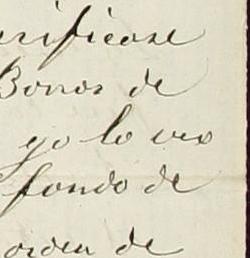 rificase
Bonos de
yo lo veo
fondo de
orden de